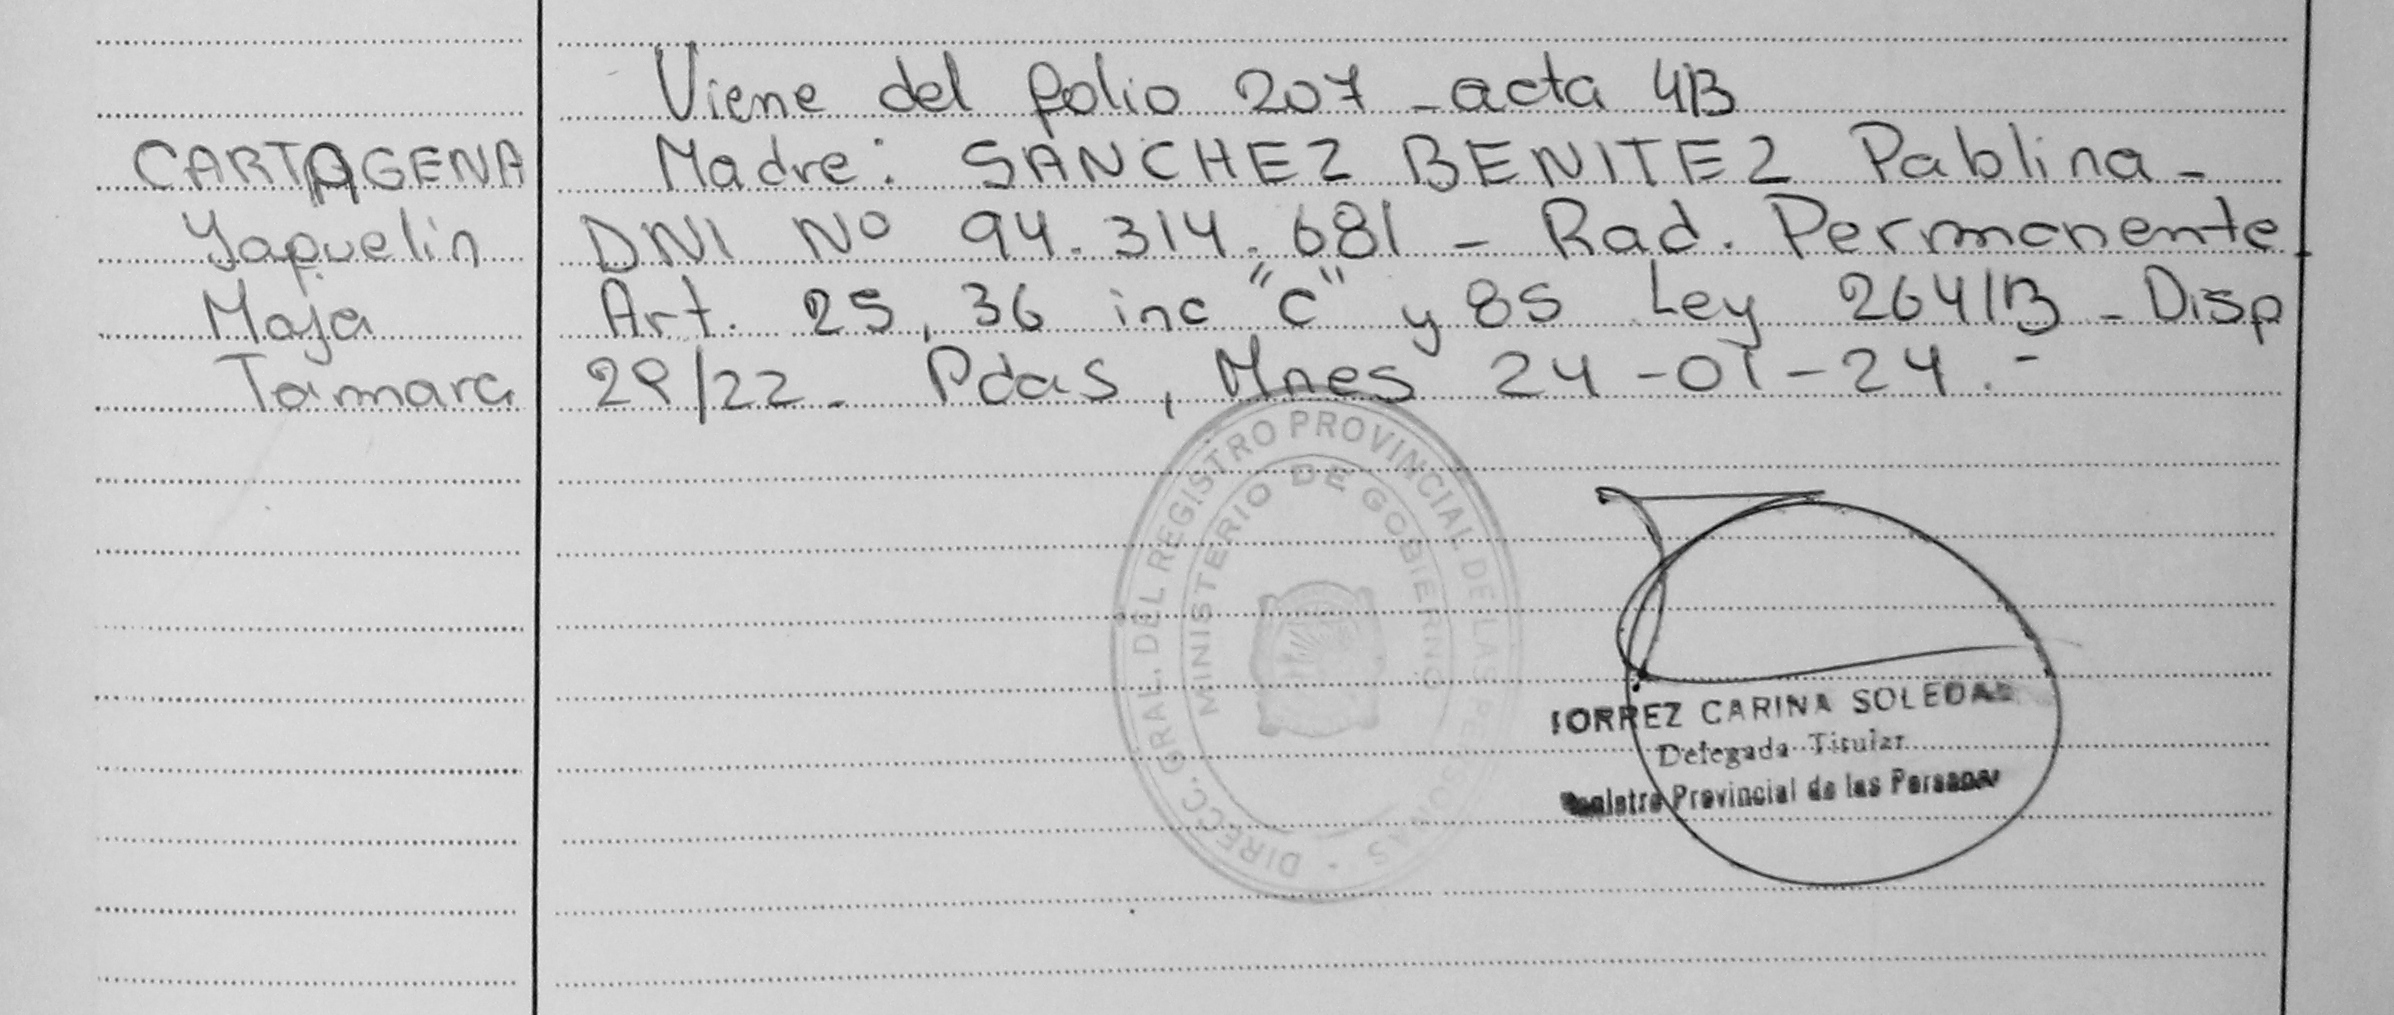 Viene del folio 207 - acta 413
CARTAGENA
Yaquelin
Maja
Tamara
Madre: SANCHEZ BENITEZ Pablina -
DNI Nº 94.314.681 - Rad. Permanente
Art. 25, 36 inc "c" y 85 Ley 26413 - Disp
29/22. Pdas, Mnes 24-01-24.-
DIRECC. GRAL. DEL REGISTRO PROVINCIAL DE LAS PERSONAS -
MINISTERIO DE GOBIERNO
TORREZ CARINA SOLEDAD
Delegada Titular
Registro Provincial de las Personas